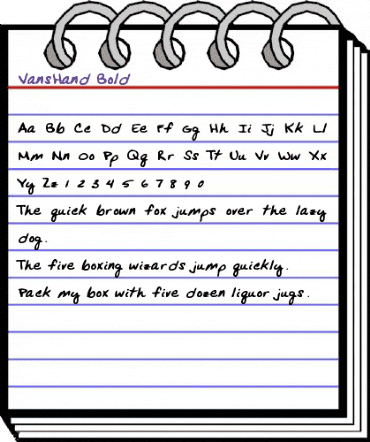 VansHand Bold
Aa Bb Cc Dd Ee Ff Gg Hh Ii Jj Kk Ll
Mm Nn Oo Pp Qq Rr Ss Tt Uu Vv Ww Xx
Yy Zz 1 2 3 4 5 6 7 8 9 0
The quick brown fox jumps over the lazy
dog.
The five boxing wizards jump quickly.
Pack my box with five dozen liquor jugs.